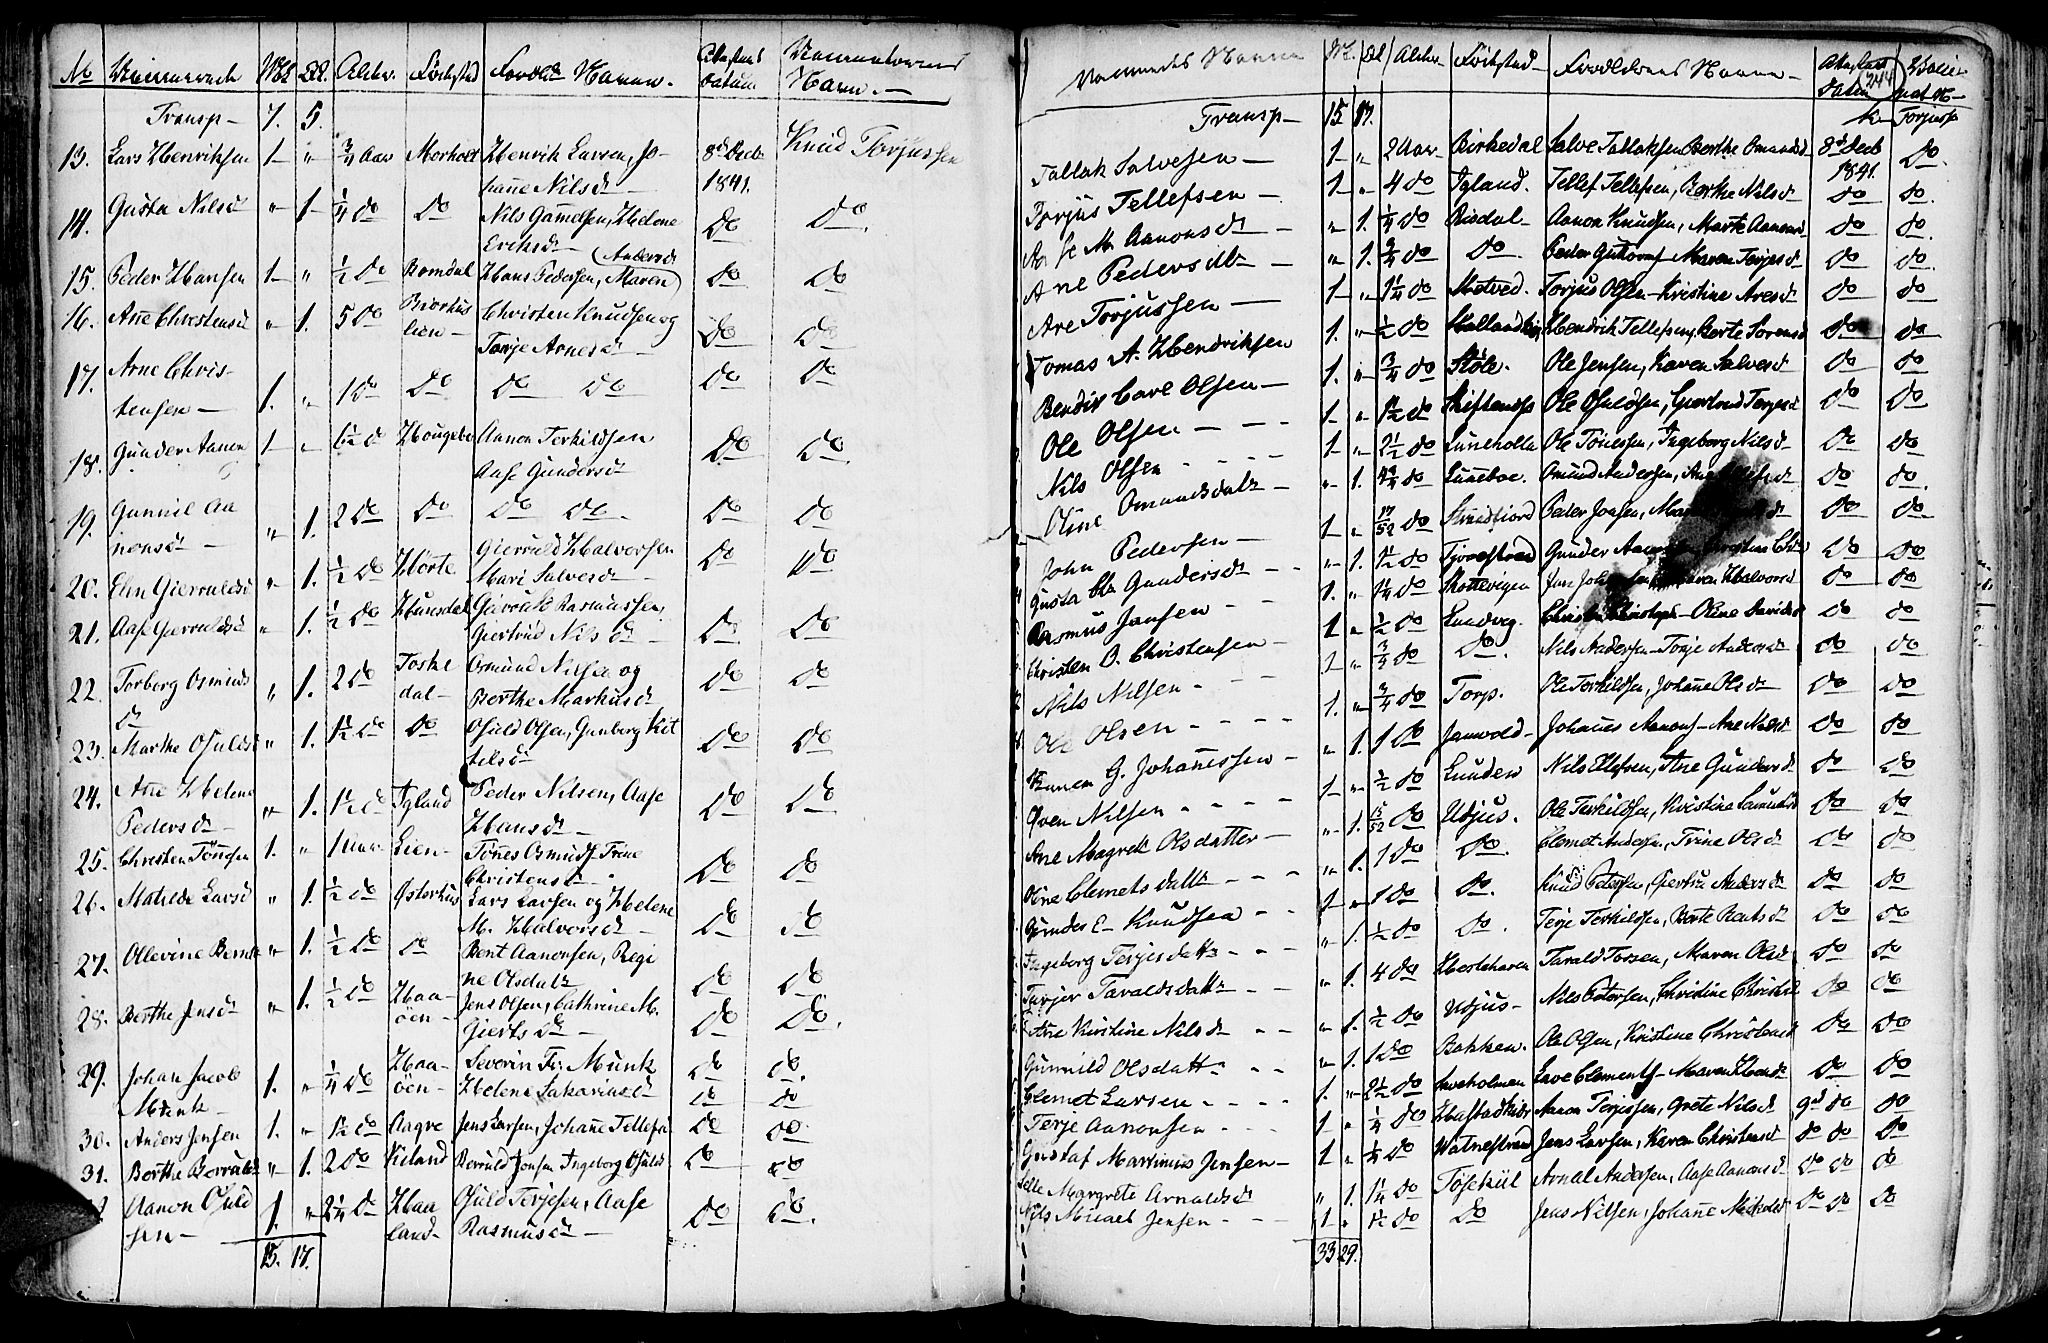 No Vaccinerede Mk. Qk. Alder. Födested Forældr. Navne. Attestens Datum Vaccinatorens Navn.
Transp 7. 5.
13. Lars Henriksen 1 " 3/4 Aar Morholt Henrik Larsen, Jo- 8de Decb. Knud Torjussen
hañe Nilsd 1841.
14. Gusta Nilsd " 1 1/4 do do Nils Gamelsen, Helene do do.
Eriksd
15. Peder Hansen 1 " 1/2 do Romdal Hans Pedersen, Maren Andersd do do
16. Añe Christensd " 1. 5 do Biorkus Christen Knudsen og do do
lien Tarje Arnesd
17. Arne Chris- 1. " 1 do do do do do do
tensen
18. Gunder Aanon 1 " 6 1/2 do Hougebo Aanon Terkildsen do do
Aase Gundersd
19. Gunnil Aa " 1. 2 do do do do. do do
nonsd
20. Elin Gieruldsd " 1. 1/2 do Hörte Gieruld Halvorsen do do
Mari Salvesd
21. Aase Gieruldsd " 1. 1/2 do Hunsdal Gieruld Rasmussen, do do
Giertrud Nilsd
22. Torborg Osmunds " 1. 2 do Toske Osmund Nilsen og do do
d dal Berthe Markusd
23. Marthe Osuldsd " 1. 1 1/2 do do Osuld Olsen, Gunborg Kit do do
telsd
24. Añe Helene " 1. 1 1/2 d Igland Peder Nilsen, Aase do do
Pedersd Hansd
25. Christen Tönesen 1. " 1 Aar Lien Tönes Osmuds. Trine do do
Christensd
26. Matilde Larsd " 1. 1/2 do Osterhus Lars Larsen og Helene do do
M. Halvorsd
27. Ollevine Bernts " 1. 1/2 do do Bent Aanonsen, Regi do do
ne Olsdatr
28. Berthe Jensd " 1. 1/2 do Haa- Jens Olsen, Cathrine M. do do.
öen Giertsdr
29. Johan Jacob 1. " 1/4 do Haa- Severin Fr. Munk do do.
Munk öen Helene Zakariasd do do
30. Anders Jensen 1. " 1 1/2 do Aagre Jens Larsen, Johañe Tellefsd do do
31. Berthe Beruldsd " 1. 2 do Kieland Beruld Jonsen Ingeborg Osulds do do
Aanon Osuld 1. " 2 1/4 do Haa Osuld Terjesen, Aase do do.
sen land Rasmusd
15. 17.

Vaccinerte Navne Mk. Qk Alder Födested Forældrenes Navne Attestens Datum 244
Transp 15 17. K. Torjuss
Tallak Salvesen 1 " 2 Aar Birkedal Salve Tallaksen Berthe Omundsd 8de Decb do.
1841.
Torjus Tellefsen 1 " 4 do Igland. Tellef Tellefsen, Berthe Nilsd do do.
M. Aanonsd " 1. 1/4 do Risdal Aanon Knudsen, Marte Aanonsd do do.
Ane Pedersdtr " 1. 3/4 do do. Peder Guttorms. Maren Terjesd do do.
Are Torjussen 1 " 1 1/4 do Metved. Torjus Olsen Kristine Aresd do do
Tomas A. Hendriksen 1. " 1/2 do Hendrik Tellefsen, Berte Sorensd do do
Bendix Carl Olsen 1. " 3/4 do Støle. Ole Jensen, Karen Salvesd do do
Ole Olsen 1 " 1 1/2 do Skiftenæs Ole Osuldsen, Giertrud Terjesd do do
Nils Olsen 1 " 2 1/2 do Luneholla Ole Tönessen, Ingeborg Nilsd do do
Oline Omundsdatr " 1. 4 3/4 do Luneboe. Omund Andersen, Ane do do.
John Pedersen 1 " 17/52 do Strandfiord Peder Jonsen, do do.
Gusta Gundersd " 1. 1 1/2 do Tjorestrand Gunder do do
Rasmus Jansen 1. " 1 1/4 do Skottevigen Jan Maren Halvorsd do do
Christen O. Christensen 1 " 1/2 do Lundvig. Christen Christoph. Oline Davidsd do do
Nils Nilsen 1 " 3/4 do do. Nils Andersen Torje Andersd do do
Ole Olsen 1. " 3/4 do Torp. Ole Terkildsen, Johañe Olsd do do
G. Johañessen " 1. 1 do Jamvold Johañes Aanons. Ane Nilsd do do
Oven Nilsen 1 " 1/2 do Lunden Nils Ellefsen, Ane Gundersd do do
Ane Magrete Olsdatter " 1. 15/52 do Usjus. Ole Terkildsen, Kristine Samuelsd do do
Oline Clemetsdatt " 1. 1 do do. Clemet Andersen, Trine Olsd do do
Gunder E. Knudsen 1 " 1 do do. Knud Petersen, Giertru Andersd do do
Ingeborg Terjesdatt " 1. 1/2 do do. Terje Terkildsen, Berte Bentsd do do
Torjer Taraldsdattr " 1. 4 do Hestehaven Tarald Torsen, Maren Olsd do do
Ane Kirstine Nilsd " 1. 1/2 do Usjus Nils Petersen, Christine Christensd do do
Gunnild Olsdatt " 1. 1 do Bakken. Ole Olsen, Kristine Christensd do do
Clemet Larsen 1. " 2 1/2 do Saveholmen Lave Clements. Maren Hansd do do
Terje Aanonsen 1 " 1/4 do Aanon Terjessen, Grete Nilsd 9de do do
Gustaf Martinius Jensen 1 " 1/4 do Watnestrand Jens Larsen, Karen Christensd do do do
Margrete Arnaldsd " 1. 1 1/4 do Tösekiil Arnal Andersen, Aase Aanonsd do do do
Nils Micael Jensen 1 " 1 1/2 do do Jens Nilsen, Johañe do do do
33 29.